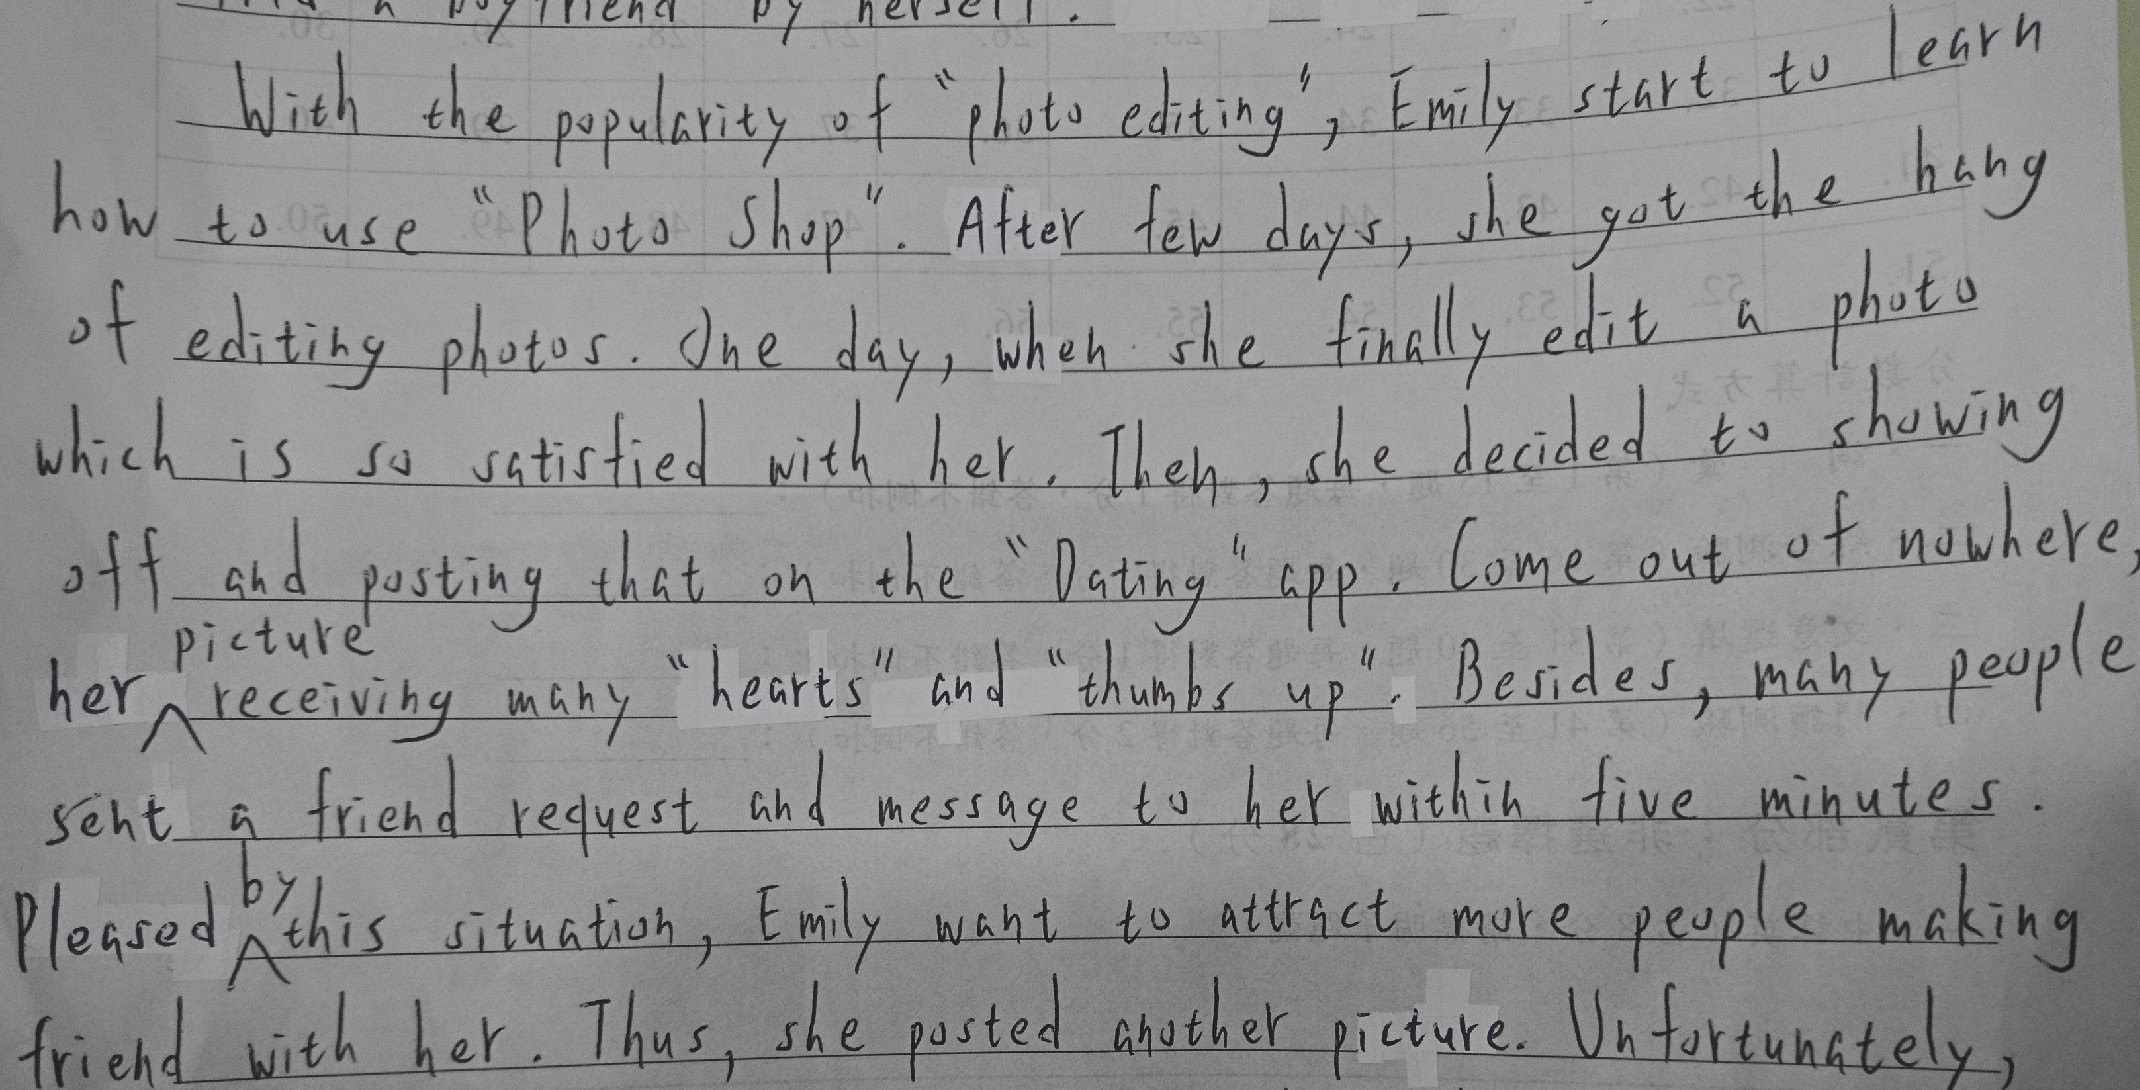 a boyfriend by herself.
With the popularity of "photo editing", Emily start to learn
how to use "Photo Shop". After few days, she got the hang
of editing photos. One day, when she finally edit a photo
which is so satisfied with her. Then, she decided to showing
off and posting that on the "Dating" app. Come out of nowhere,
picture
her ^ receiving many "hearts" and "thumbs up". Besides, many people
sent a friend request and message to her within five minutes.
by
Pleased ^ this situation, Emily want to attract more people making
friend with her. Thus, she posted another picture. Unfortunately,